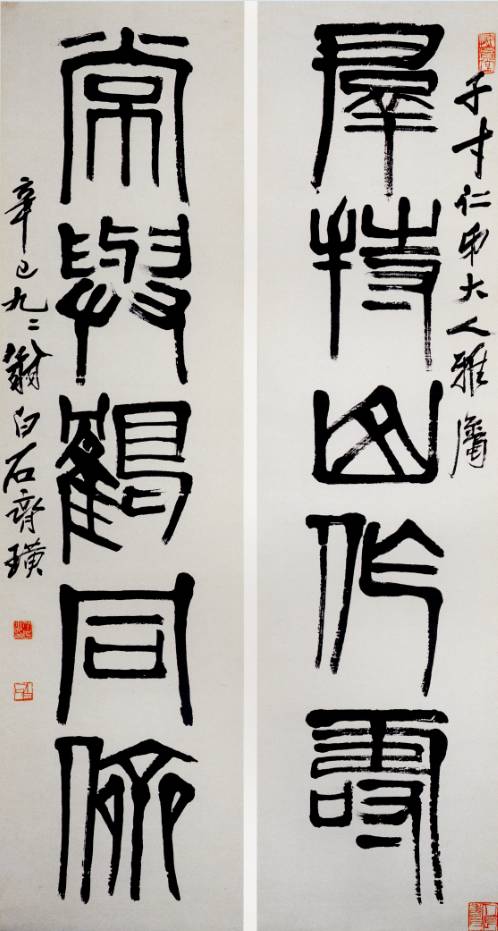 子才仁弟大人雅屬
羣持山作壽
常與鶴同儕
辛巳九二翁白石齊璜